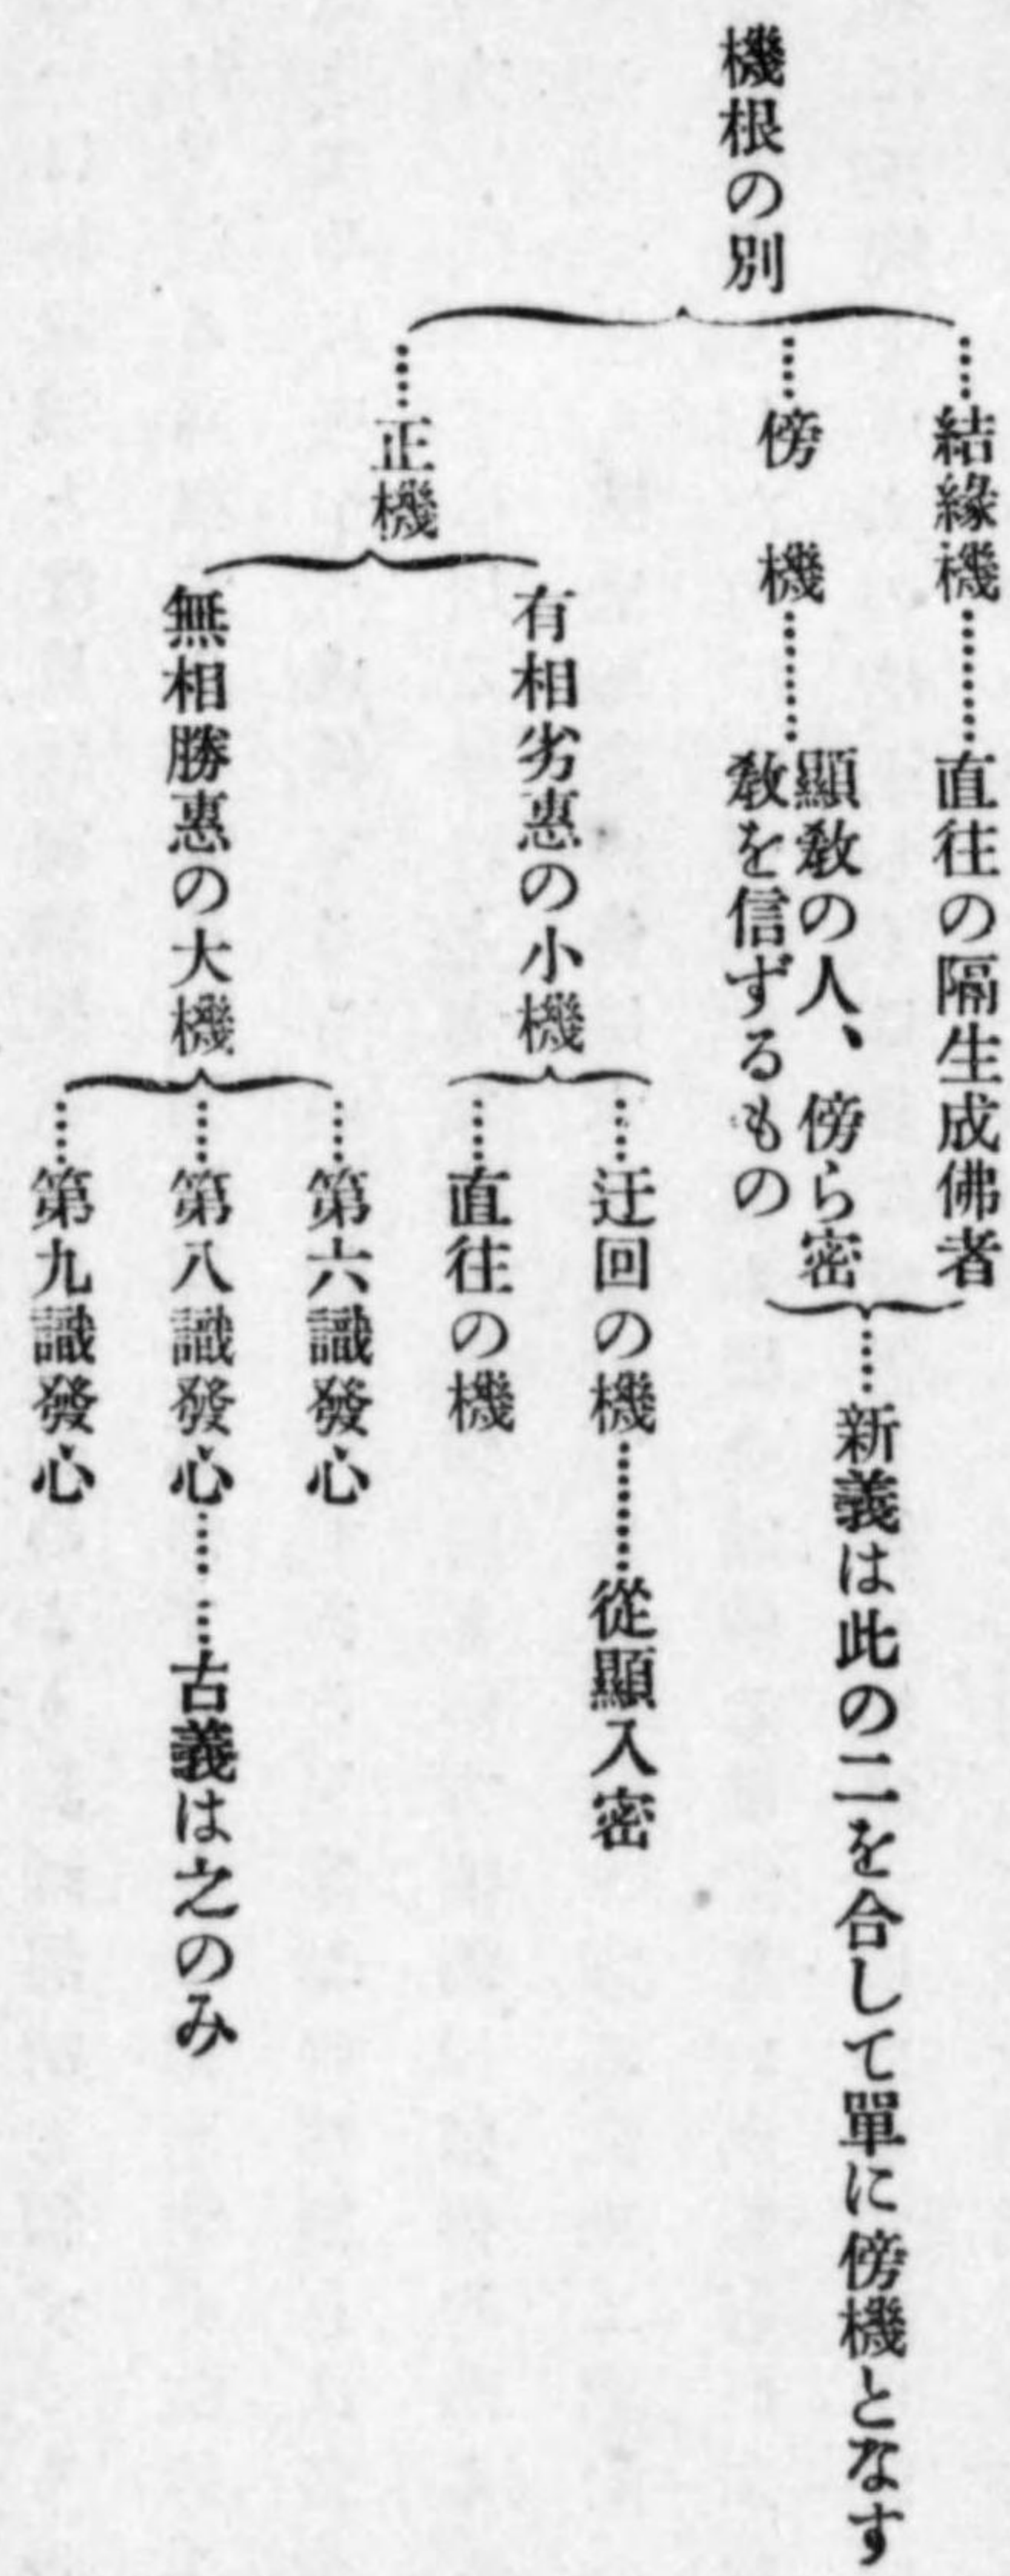 機根の別
結緣機……直往の隔生成佛者
傍　機……顯敎の人、傍ら密
敎を信ずるもの
……新義は此の二を合して單に傍機となす
……正機
有相劣惠の小機
……迂回の機……從顯入密
……直往の機
無相勝惠の大機
……第六識發心
……第八識發心……古義は之のみ
……第九識發心